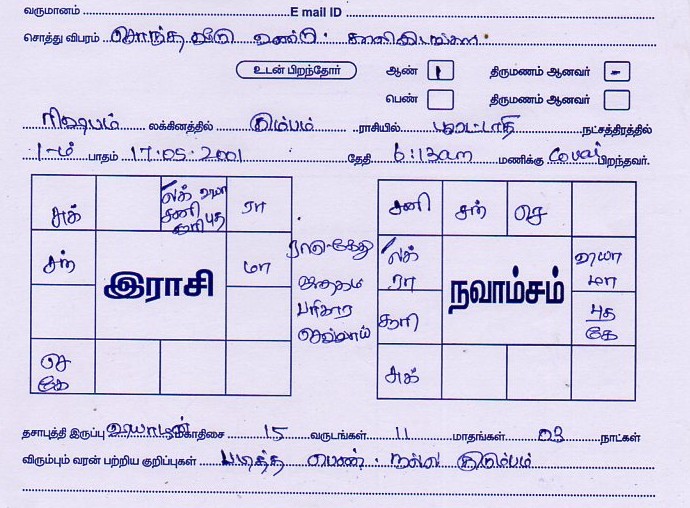 வருமானம் E mail ID
சொத்து விபரம் சொந்த வீடு வண்டி.
உடன் பிறந்தோர் ஆண் 1 திருமணம் ஆனவர் -
பெண் திருமணம் ஆனவர்
ரிஷபம் லக்கினத்தில் கும்பம் ராசியில் பூரட்டாதி நட்சத்திரத்தில்
1-ம் பாதம் 17.05.2001 தேதி 6:13am மணிக்கு கோவை பிறந்தவர்.
சுக் லக் சூரி சனி குரு புத ரா
சந் மா
இராசி
செ கே
ராகு-கேது
பரிகார
செவ்வாய்
சனி சந் செ
லக் ரா மா
நவாம்சம்
சூரி புத கே
சுக்
தசாபுத்தி இருப்பு மகாதிசை 15 வருடங்கள் 11 மாதங்கள் 03 நாட்கள்
விரும்பும் வரன் பற்றிய குறிப்புகள் படித்த பெண். நல்ல குடும்பம்